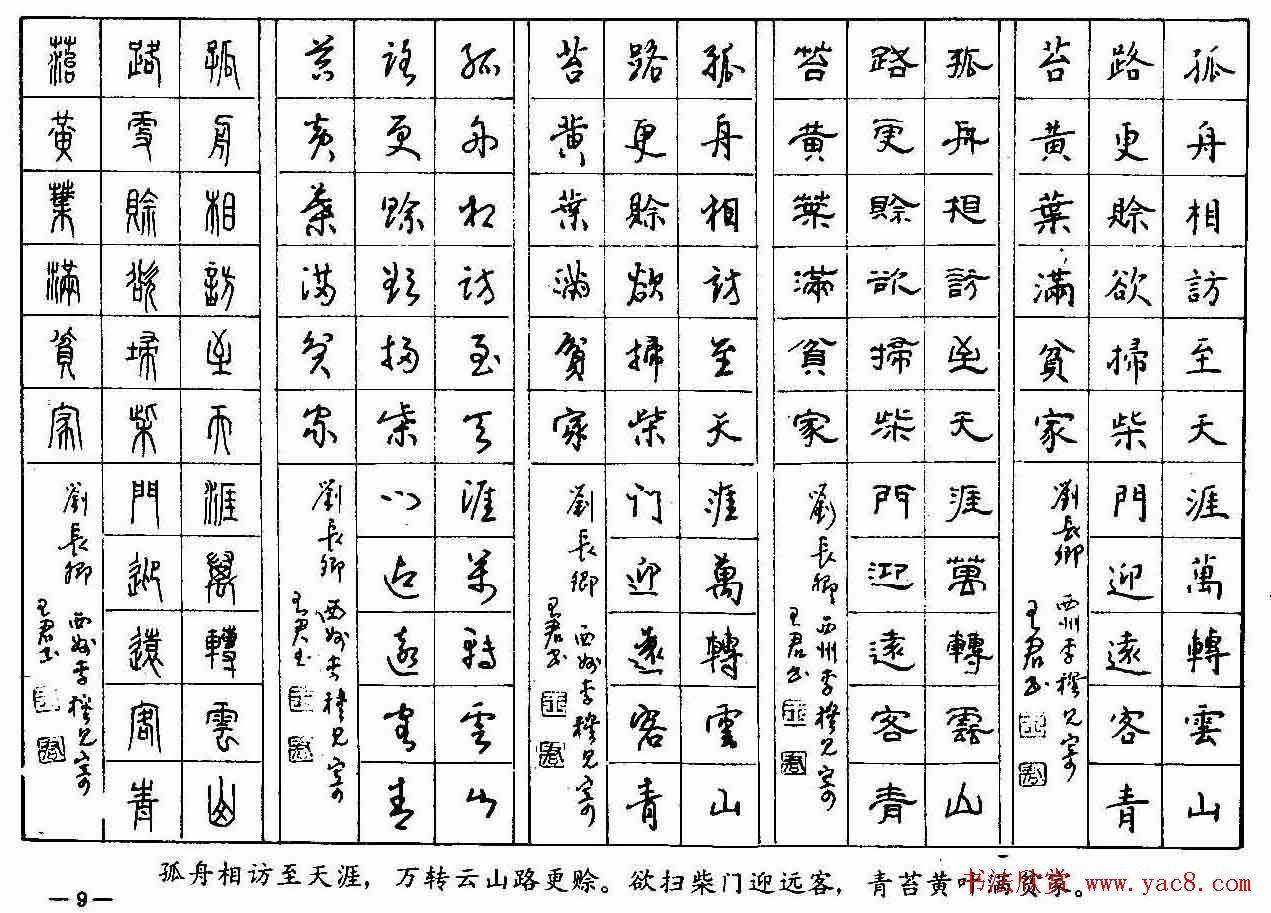 孤舟相訪至天涯萬轉雲山
路更賒欲掃柴門迎遠客青
苔黃葉滿貧家
劉長卿 酬李穆見寄
王君书
孤舟相訪至天涯萬轉雲山
路更賒欲掃柴門迎遠客青
苔黃葉滿貧家
劉長卿 酬李穆見寄
王君书
孤舟相訪至天涯萬轉雲山
路更賒欲掃柴门迎遠客青
苔黃葉滿貧家
劉長卿 酬李穆見寄
王君书
孤舟相訪至天涯萬轉雲山
路更賒欲掃柴門迎遠客青
苔黃葉滿貧家
劉長卿 酬李穆見寄
王君书
孤舟相訪至天涯萬轉雲山
路更賒欲掃柴門迎遠客青
苔黃葉滿貧家
劉長卿 酬李穆見寄
王君书
孤舟相访至天涯，万转云山路更赊。欲扫柴门迎远客，青苔黄叶满贫家。
书法欣赏 www.yac8.com
—9—